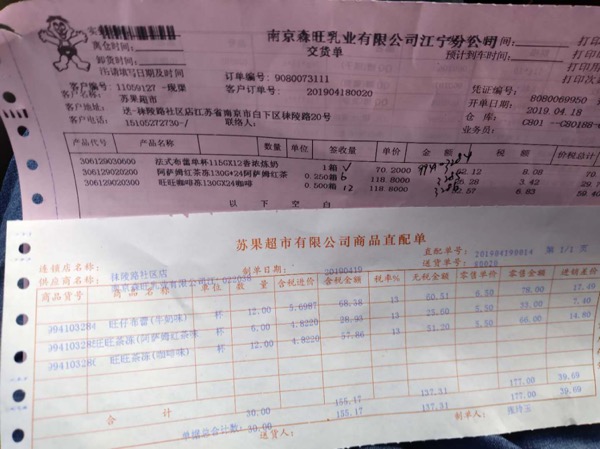 南京森旺乳业有限公司江宁分公司
交货单
离仓时间:
预计到车时间:
卸货时间:
订单编号: 9080073111
客户编号: 11059127 -现渠
客户订单号: 201904180020
凭证编号: 8080069950
客户名称: 苏果超市
开单日期: 2019.04.18
客户地址: 送-秣陵路社区店江苏省南京市白下区秣陵路20号
仓 库:
客户电话: 15105272730-/
联络人:
业务员:
产品代号 产品名称 数量 单位 签收量 单价 金额 税额 价税总计
306129030600 法式布蕾单杯115GX12香浓炼奶 1箱 70.2000 62.12 8.08
306129020200 阿萨姆红茶冻130G*24阿萨姆红茶 0.250箱 6 118.8000 26.28 3.42
306129020300 旺旺咖啡冻130GX24咖啡 0.500箱 12 118.8000 6.83
以 下 空 白
苏果超市有限公司商品直配单
直配单号: 201904190014 第 1/1 页
送货单号:
连锁店名称: 秣陵路社区店
制单日期: 20190419
供应商名称:
商品货号 商品名称 单位 数量 含税进价 含税金额 税率% 无税金额 零售单价 零售金额 进销差价
99410328 旺仔布蕾(牛奶味) 杯 12.00 5.6987 68.38 13 60.51 6.50 78.00 17.49
99410328 旺旺茶冻(阿萨姆红茶味 杯 6.00 4.8220 28.93 13 25.60 5.50 33.00 7.40
99410328 旺旺茶冻(咖啡味) 杯 12.00 4.8220 57.86 13 51.20 5.50 66.00 14.80
合 计 30.00 155.17 137.31 177.00 39.69
单据总合计数: 30.00 155.17 137.31 177.00 39.69
送货人: 制单人: